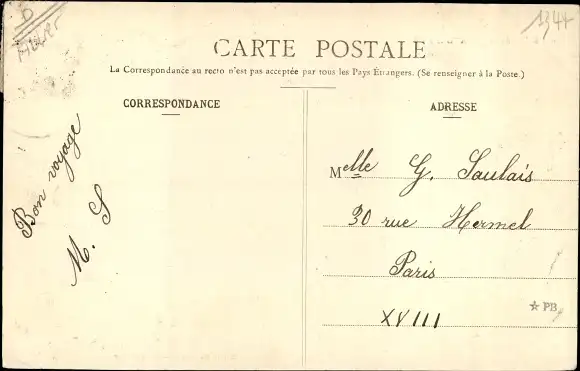 D
1344
CARTE POSTALE
La Correspondance au recto n'est pas acceptée par tous les Pays Étrangers. (Se renseigner à la Poste.)
CORRESPONDANCE
Bon voyage
M. S
ADRESSE
Melle G. Saulais
30 rue Hermel
Paris
XVIII
☆ PB